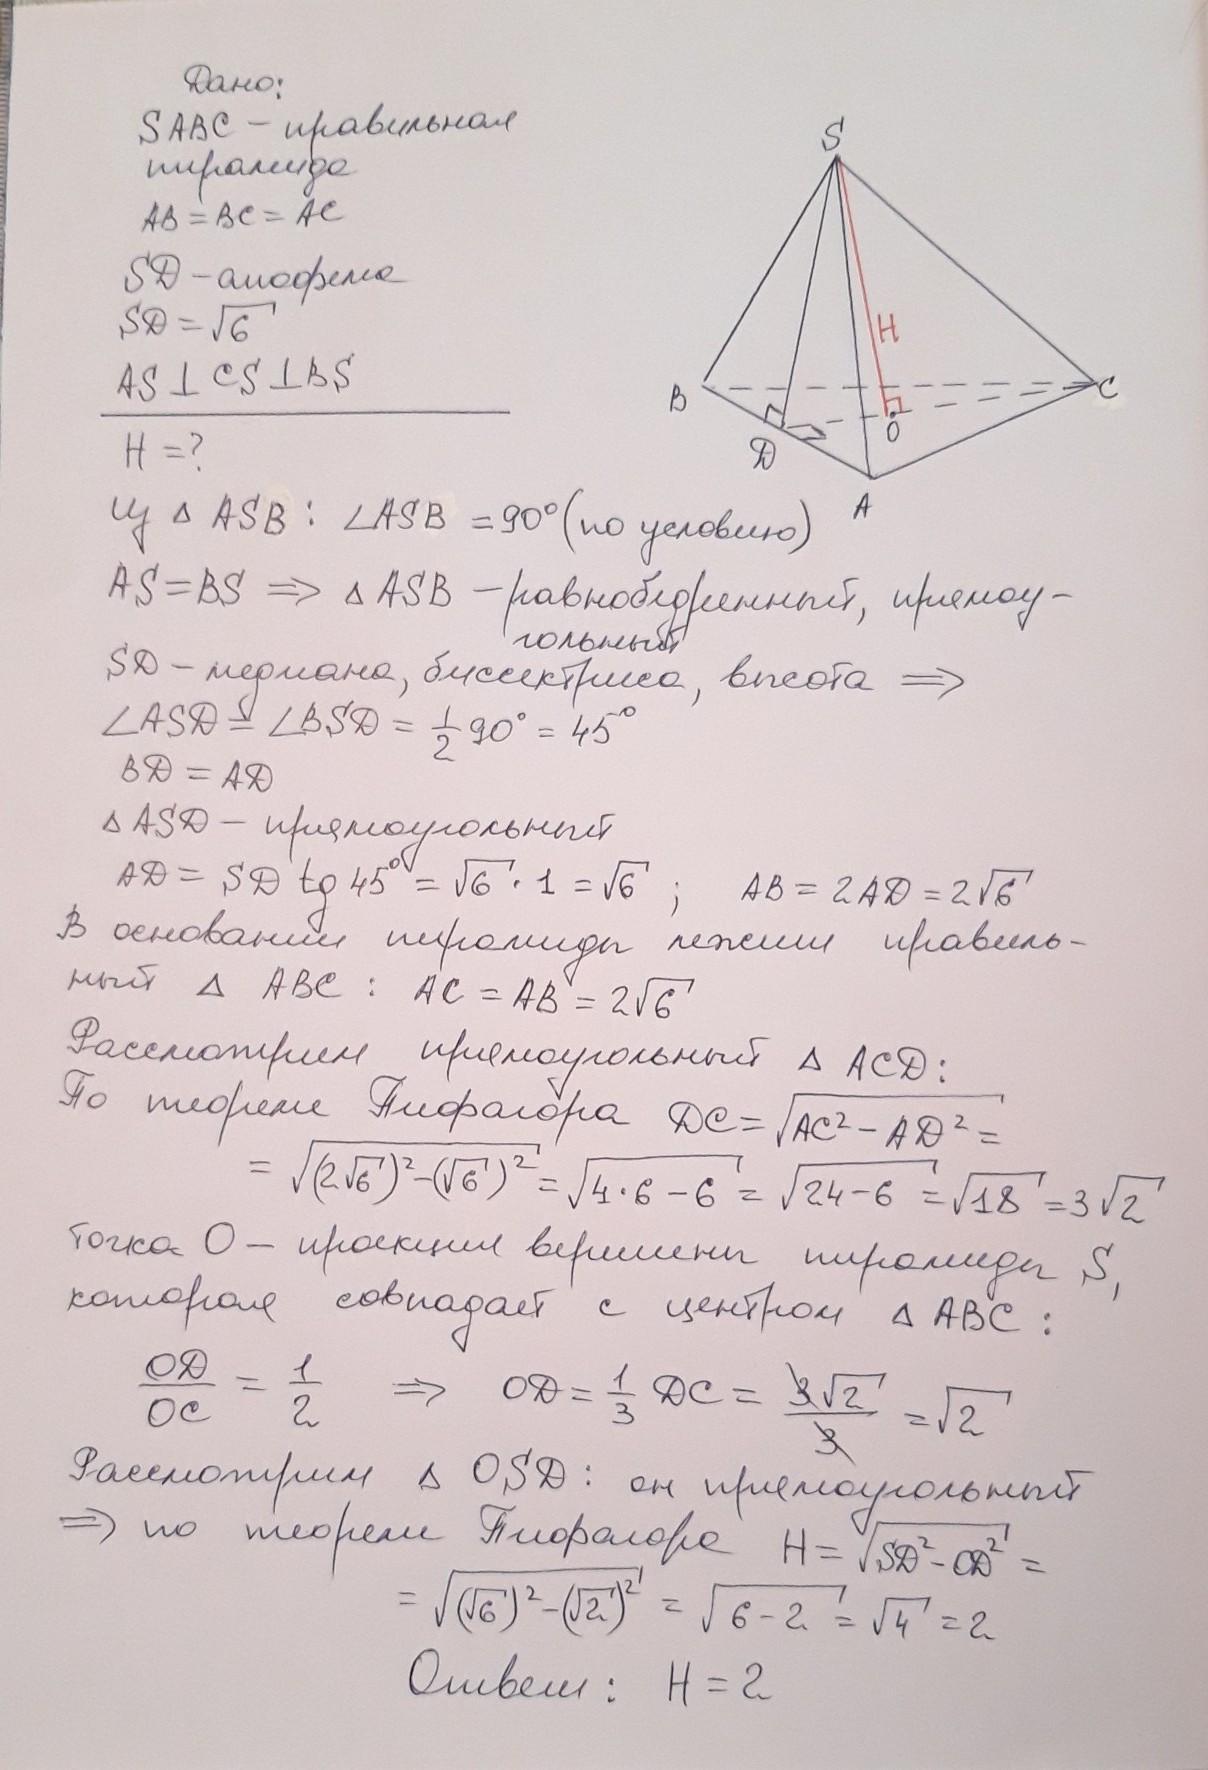 Дано:
SABC – правильная
пирамида
AB = BC = AC
SD – апофема
SD = √6
AS ⊥ CS ⊥ BS
H = ?
S
H
B
C
D
O
A
Из △ ASB : ∠ASB = 90° (по условию)
AS = BS ⇒ △ ASB – равнобедренный, прямоу-
гольный
SD – медиана, биссектриса, высота ⇒
∠ASD = ∠BSD = 1/2 90° = 45°
BD = AD
△ ASD – прямоугольный
AD = SD tg 45° = √6 · 1 = √6 ; AB = 2AD = 2√6
В основании пирамиды лежит правиль-
ный △ ABC : AC = AB = 2√6
Рассмотрим прямоугольный △ ACD :
По теореме Пифагора DC = √(AC² – AD²) =
= √((2√6)² – (√6)²) = √(4·6 – 6) = √(24 – 6) = √18 = 3√2
Точка O – проекция вершины пирамиды S,
которая совпадает с центром △ ABC :
OD/OC = 1/2 ⇒ OD = 1/3 DC = 3√2/3 = √2
Рассмотрим △ OSD : он прямоугольный
⇒ по теореме Пифагора H = √(SD² – OD²) =
= √((√6)² – (√2)²) = √(6 – 2) = √4 = 2
Ответ : H = 2